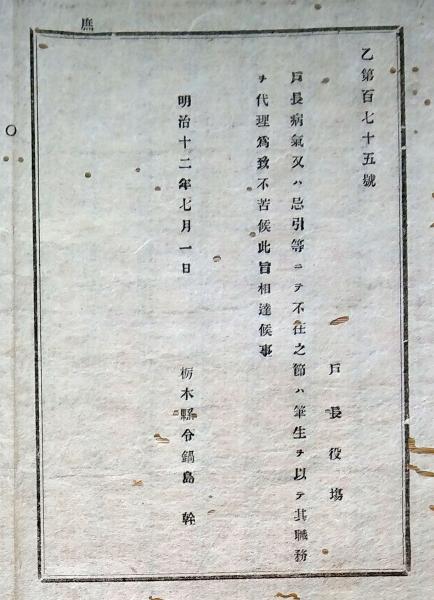 庶
乙第百七十五號
戸長役塲
戸長病氣又ハ忌引等ニテ不在之節ハ筆生ヲ以テ其職務
ヲ代理爲致不苦候此旨相達候事
明治十二年七月一日
栃木縣令鍋島幹
〇